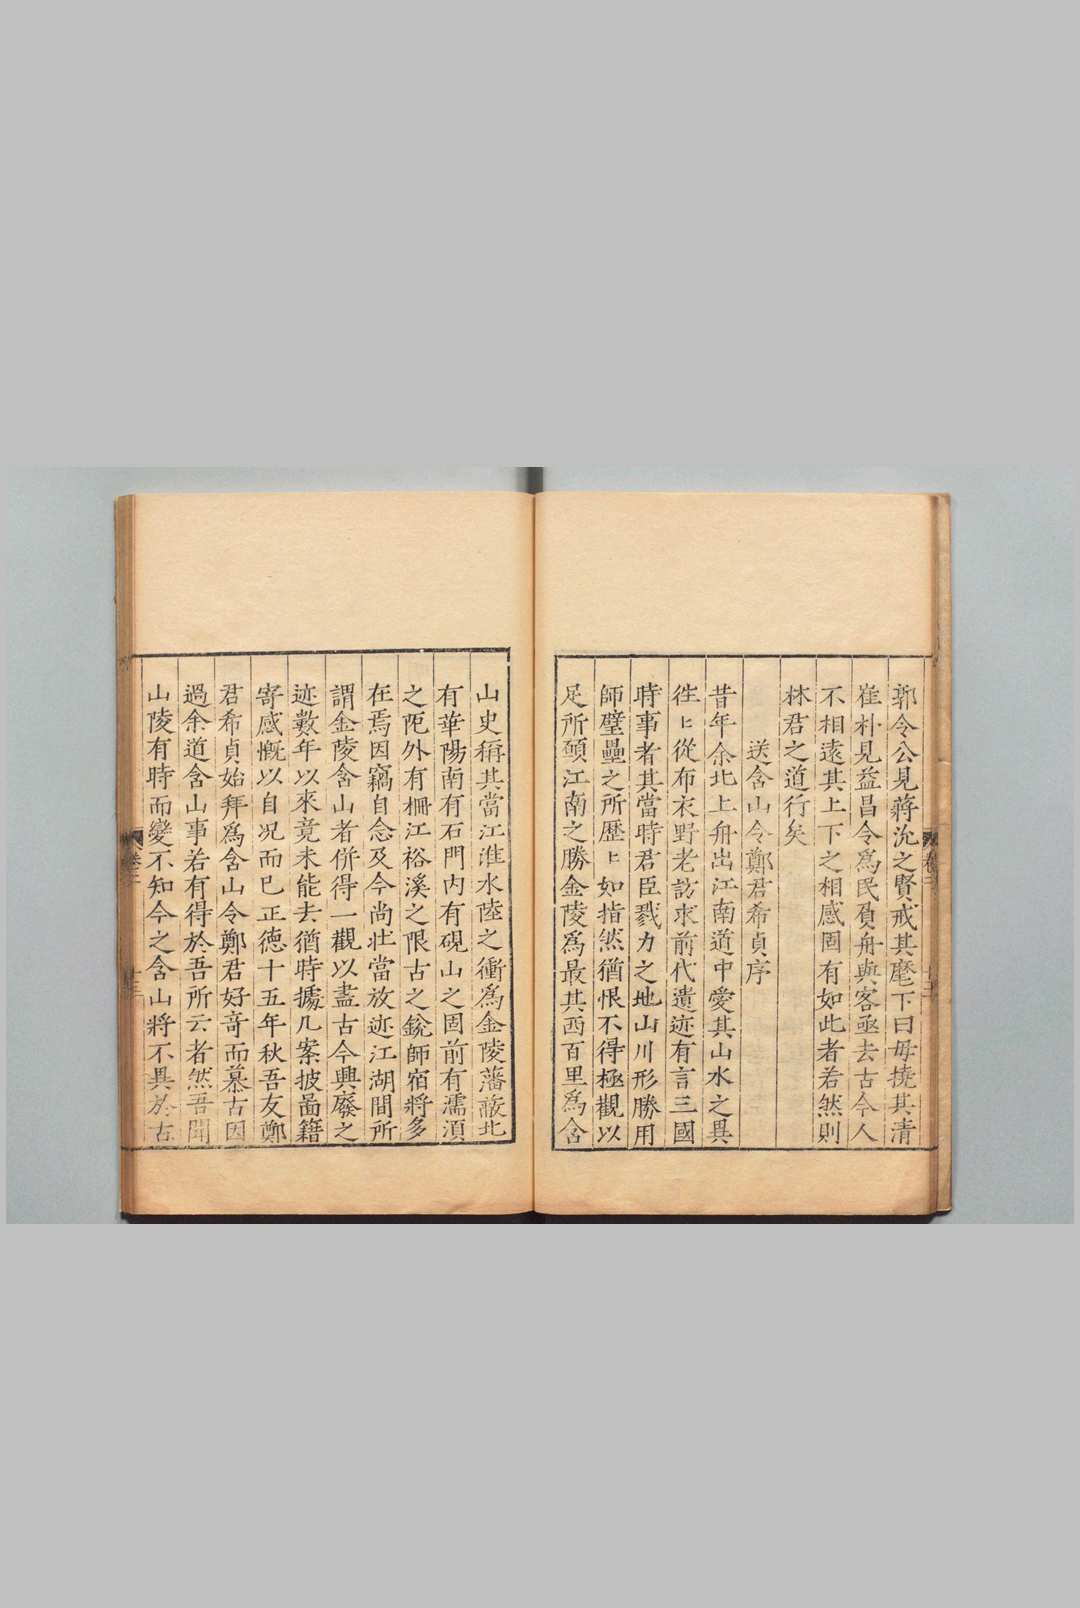 郭令公見蔣沇之賢戒其麾下曰毋撓其清
崔朴見益昌令爲民負舟與客亟去古今人
不相遠其上下之相感固有如此者若然則
林君之道行矣
送含山令鄭君希貞序
昔年余北上舟出江南道中愛其山水之異
徃〻從布衣野老訪求前代遺迹有言三國
時事者其當時君臣戮力之地山川形勝用
師壁壘之所歷〻如指然猶恨不得極觀以
足所頋江南之勝金陵爲最其西百里爲含
山史稱其當江淮水陸之衝爲金陵藩蔽北
有華陽南有石門内有硯山之固前有濡湏
之阨外有柵江裕溪之限古之銳師宿將多
在焉因竊自念及今尚壯當放迹江湖間所
謂金陵含山者併得一觀以盡古今興廢之
迹數年以來竟未能去猶時據几案披啚籍
寄感慨以自况而已正德十五年秋吾友鄭
君希貞始拜爲含山令鄭君好竒而慕古因
過余道含山事若有得於吾所云者然吾聞
山陵有時而變不知今之含山將不異於古